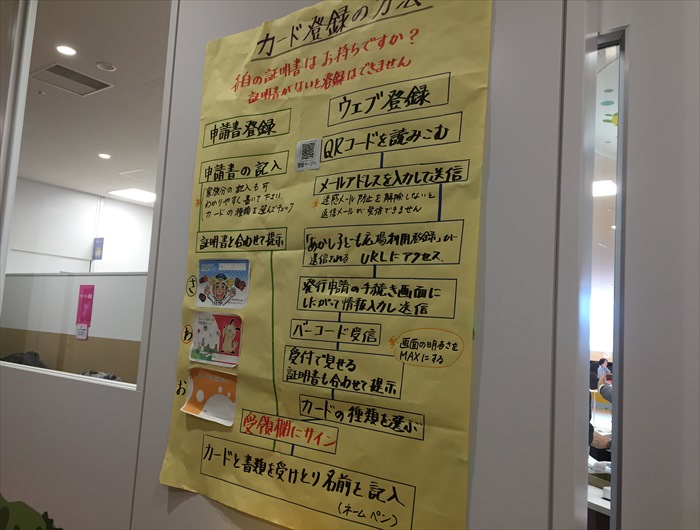 カード登録の方法
証明書はお持ちですか？
証明書がないと登録はできません
申請書登録
申請書の記入
わかりやすく書いて下さい。
カードの種類を選んでチェック
証明書と合わせて提示
さ
わ
お
受領欄にサイン
ウェブ登録
QRコードを読みこむ
メールアドレスを入力して送信
※迷惑メール防止を解除しないと
送信メールが受信できません
「あかし子ども広場利用登録」が
送信される URLにアクセス
発行申請の手続き画面に
したがって情報入力し送信
バーコード受信
※画面の明るさを
MAXにする
受付で見せる
証明書も合わせて提示
カードの種類を選ぶ
カードと書類を受けとり名前を記入
(ネームペン)